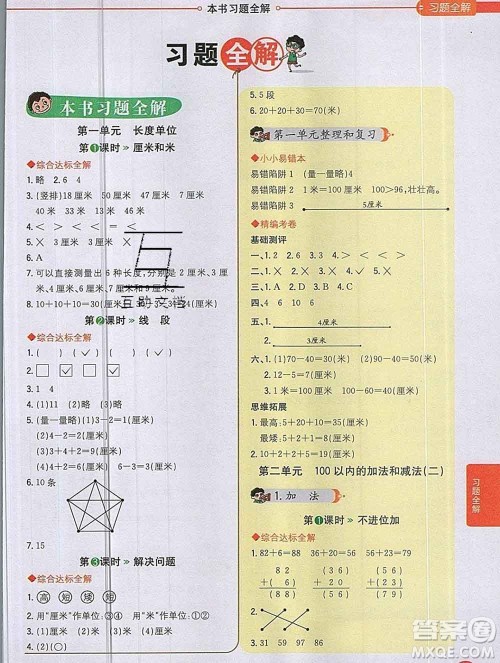 本书习题全解
习题全解
习题全解
本书习题全解
第一单元 长度单位
第1课时 » 厘米和米
◆综合达标全解
1. 略 2. 6 4
3. (竖排)18厘米 7厘米 30厘米
40厘米 30厘米 45厘米
4. < > < = < =
5. ╳ ╳ ╳
6. A
7. 可以直接测量出6种长度,分别是2厘
米、3厘米、4厘米、5厘米、7厘米和9厘米。
第2课时 » 线 段
◆综合达标全解
1. ( ) (✓) ( ) ( ) (✓)
3. 1 4
4. (1)11 (2)略 (3)略
5. (量一量略)(1)3-1=2(厘米)
(2)4-2=2(厘米)
(3)4+2=6(厘米)
6. 10条
7. 15
第3课时 » 解决问题
◆综合达标全解
1. 高 短 矮 短
2. 用“厘米”作单位:③④ 用“米”作单位:①②
3. (1)( ) (✓) ( )
4. (2)( )
5. 5段
6. 20+20+30=70(米)
第一单元整理和复习
◆小小易错本
易错陷阱1 (量一量略)4
易错陷阱2 1米=100厘米 100>96,壮壮高。
易错陷阱3
5厘米
◆精编考卷
基础测评
一、1. 2 2. ①② ③④
二、1. ✓ 2. ╳ 3. ╳
三、1. A 2. D 3. B 4. A
四、4 6 10 6
五、1.
4厘米
2.
3厘米
六、1. (1)70-40=30(厘米) (2)90-52=38(厘米)
2. 12-5=7(厘米)
3. 1米=100厘米 100-20=80(厘米)
思维拓展
1. 最高:5+20+10=35(厘米)
最矮:5+2+10=17(厘米)
2. 20+30+30=80(米)
第二单元 100以内的加法和减法(二)
1. 加 法
第1课时 » 不进位加
◆综合达标全解
1. 82+6=88 33+53=86 20+56=76
82 (33) (20)
+ (6) +(53) +(56)
(88) (86) (76)
3. 31 59 97 86
习题全解
互助文档
答案圈
MXQE.COM